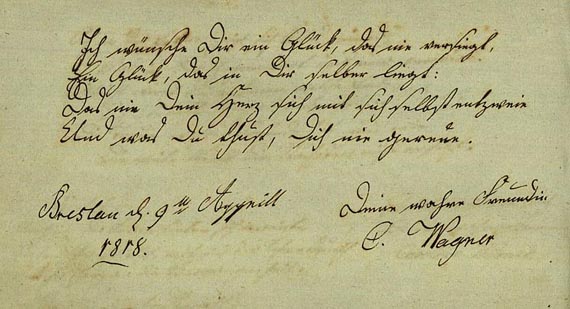 Ich wünsche Dir ein Glück, das nie versiegt,
Ein Glück, das in Dir selber liegt:
Das nie Dein Herz sich mit sich selbst entzweie
Und was Du thust, Dich nie gereue.
Breslau d. 9ten Appril
1818.
Deine wahre Freundin
C. Wagner